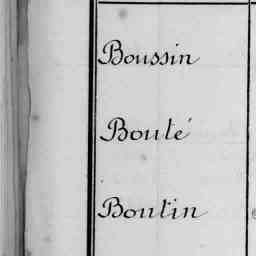 Boussin
Bouté
Boutin